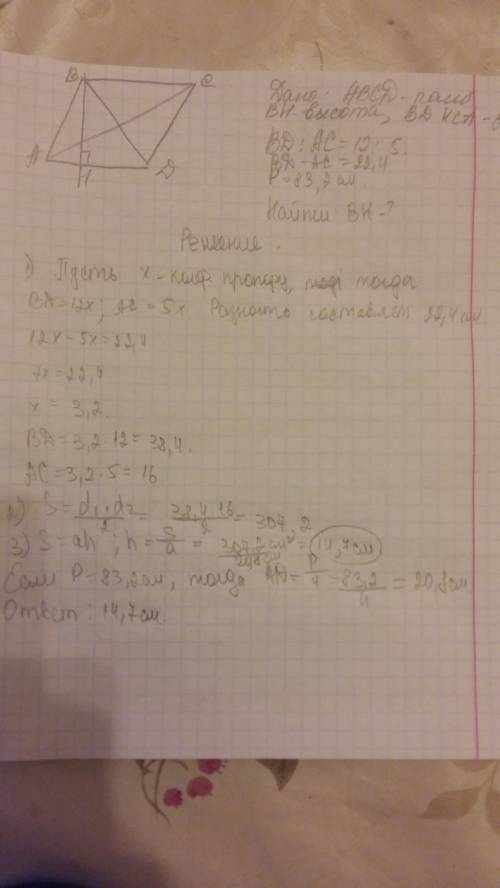 B C
A H D
Дано: ABCD - ромб
BH - высота, BD и CA -
BD : AC = 12 : 5.
BD - AC = 22,4
P = 83,2 см.
Найти: BH - ?
Решение.
1) Пусть x - коэф. пропорц, тогда
BD = 12x; AC = 5x Разность составляет 22,4 см
12x - 5x = 22,4
7x = 22,4
x = 3,2.
BD = 3,2 · 12 = 38,4.
AC = 3,2 · 5 = 16
2) S = d₁·d₂/2 = 38,4·16/2 = 304,2
3) S = ah ; h = S/a = 304,2 см²/20,8 см = 14,7 см
Если P = 83,2 см, тогда AD = P/4 = 83,2/4 = 20,8 см
Ответ: 14,7 см.